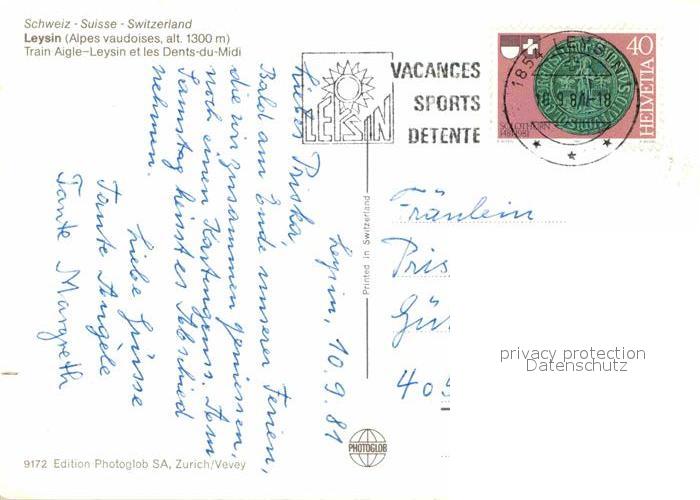 Schweiz - Suisse - Switzerland
Leysin (Alpes vaudoises, alt. 1300 m)
Train Aigle-Leysin et les Dents-du-Midi
LEYSIN
VACANCES
SPORTS
DETENTE
1854 LEYSIN
40
HELVETIA
SOLOTHURN
1481-1981
Leysin, 10.9.81
Liebes Priska,
Bald am Ende unserer Ferien,
die wir zusammen geniessen,
noch einen Kartengruss. Am
Samstag heisst es Abschied
nehmen.
Liebe Grüsse
Tante Angèle
Tante Margreth
Printed in Switzerland
Fräulein
Pris
Gü
405
privacy protection
Datenschutz
PHOTOGLOB
9172 Edition Photoglob SA, Zurich/Vevey